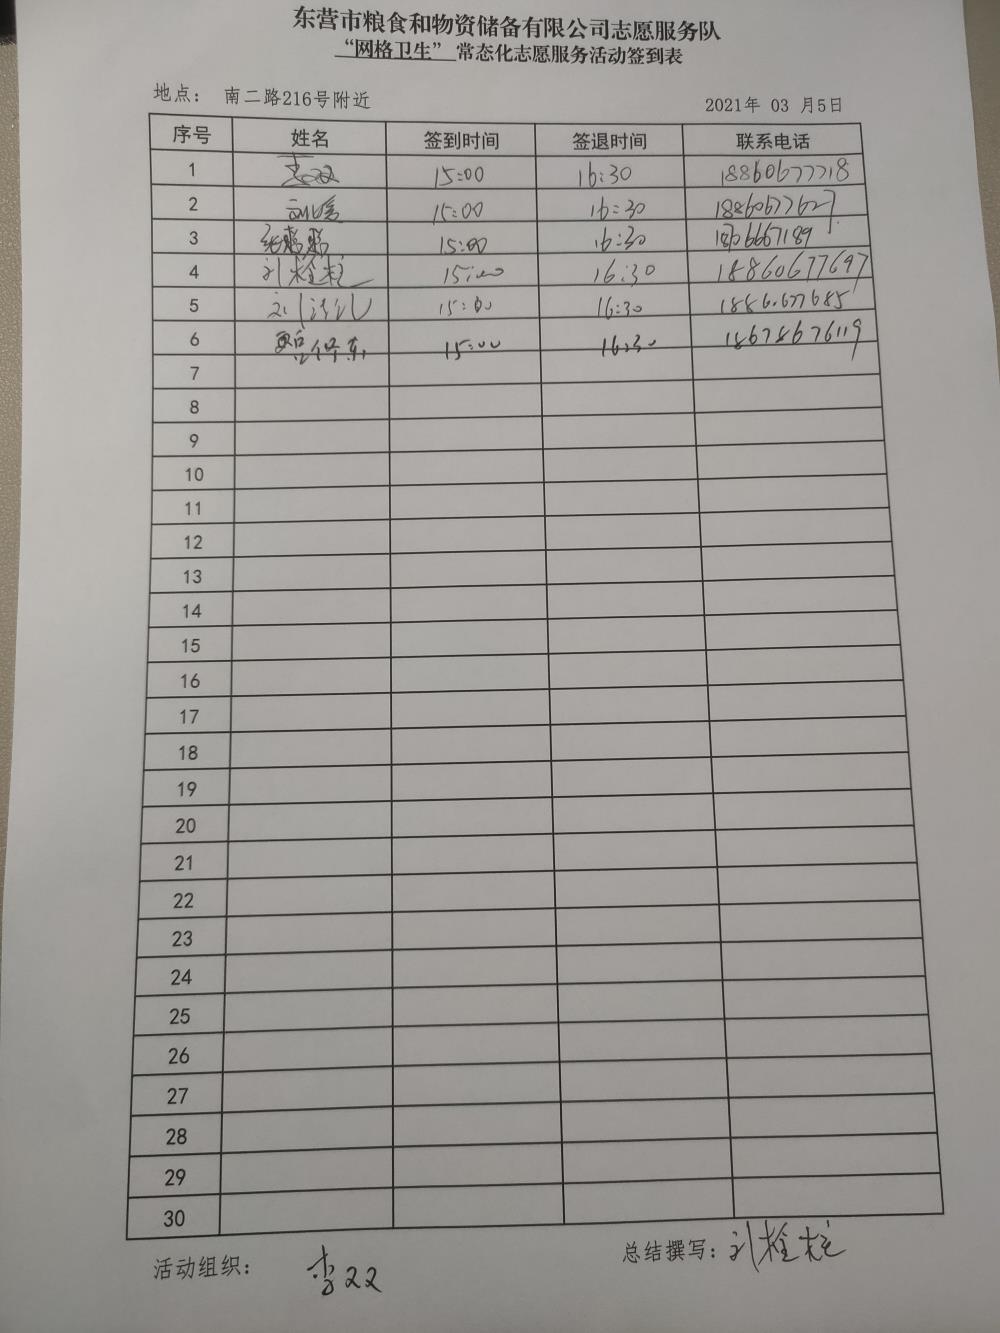 东营市粮食和物资储备有限公司志愿服务队
“网格卫生” 常态化志愿服务活动签到表
地点： 南二路216号附近 2021年 03 月5日
序号 姓名 签到时间 签退时间 联系电话
1 15:00 16:30 18860677718
2 15:00 16:30 18860677627
3 15:00 16:30
4 刘栓柱 15:00 16:30 18860677697
5 15:00 16:30
6 15:00 16:30 18678676119
7
8
9
10
11
12
13
14
15
16
17
18
19
20
21
22
23
24
25
26
27
28
29
30
活动组织： 李双 总结撰写：刘栓柱